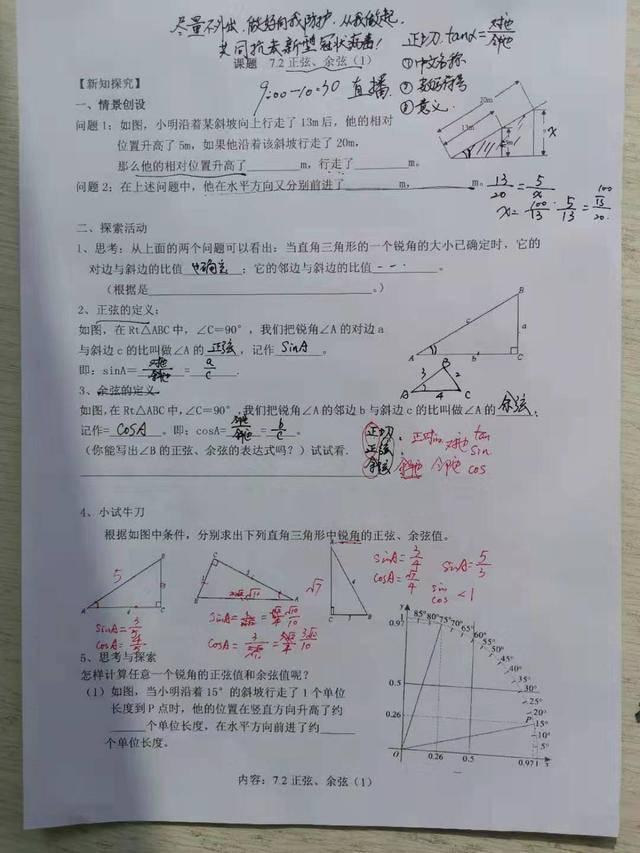 尽量不外出,做好自我防护,从我做起,
共同抗击新型冠状病毒!
课题 7.2 正弦、余弦（1）
正切. tanα=对边/邻边
①中文名称
②数学符号
③意义.
9:00-10:30 直播
【新知探究】
一、情景创设
问题 1：如图，小明沿着某斜坡向上行走了 13m 后，他的相对
位置升高了 5m，如果他沿着该斜坡行走了 20m，
那么他的相对位置升高了 m，行走了 m。
问题 2：在上述问题中，他在水平方向又分别前进了 m， m。
20m
13m
x
13/20=5/x
二、探索活动
1、思考：从上面的两个问题可以看出：当直角三角形的一个锐角的大小已确定时，它的
对边与斜边的比值 也确定 ；它的邻边与斜边的比值 。
（根据是 。）
2、正弦的定义：
如图，在 Rt△ABC 中，∠C=90°，我们把锐角∠A 的对边 a
与斜边 c 的比叫做∠A 的 正弦，记作 sinA 。
即：sinA=对边/斜边=a/c.
B
c
a
A
b
C
B
3
2
A
4
C
3、余弦的定义
如图，在 Rt△ABC 中，∠C=90°，我们把锐角∠A 的邻边 b 与斜边 c 的比叫做∠A 的 余弦，
记作= cosA 。即：cosA=邻边/斜边=b/c。
（你能写出∠B 的正弦、余弦的表达式吗？）试试看.
正切 对边 tan
正弦 sin
余弦 cos
4、小试牛刀
根据如图中条件，分别求出下列直角三角形中锐角的正弦、余弦值。
5
sinA=3/5
cosA=4/5
√7
sinA=3/4
cosA=√7/4
sinA=5/3
sin
cos <1
5、思考与探索
怎样计算任意一个锐角的正弦值和余弦值呢？
（1）如图，当小明沿着 15°的斜坡行走了 1 个单位
长度到 P 点时，他的位置在竖直方向升高了约
个单位长度，在水平方向前进了约
个单位长度。
y
0.97
85°80°75°70°65°
60°
55°
50°
45°
40°
35°
30°
25°
20°
15°
10°
5°
P
0.5
0.26
O
0.26
0.5
0.971
x
内容：7.2 正弦、余弦（1）